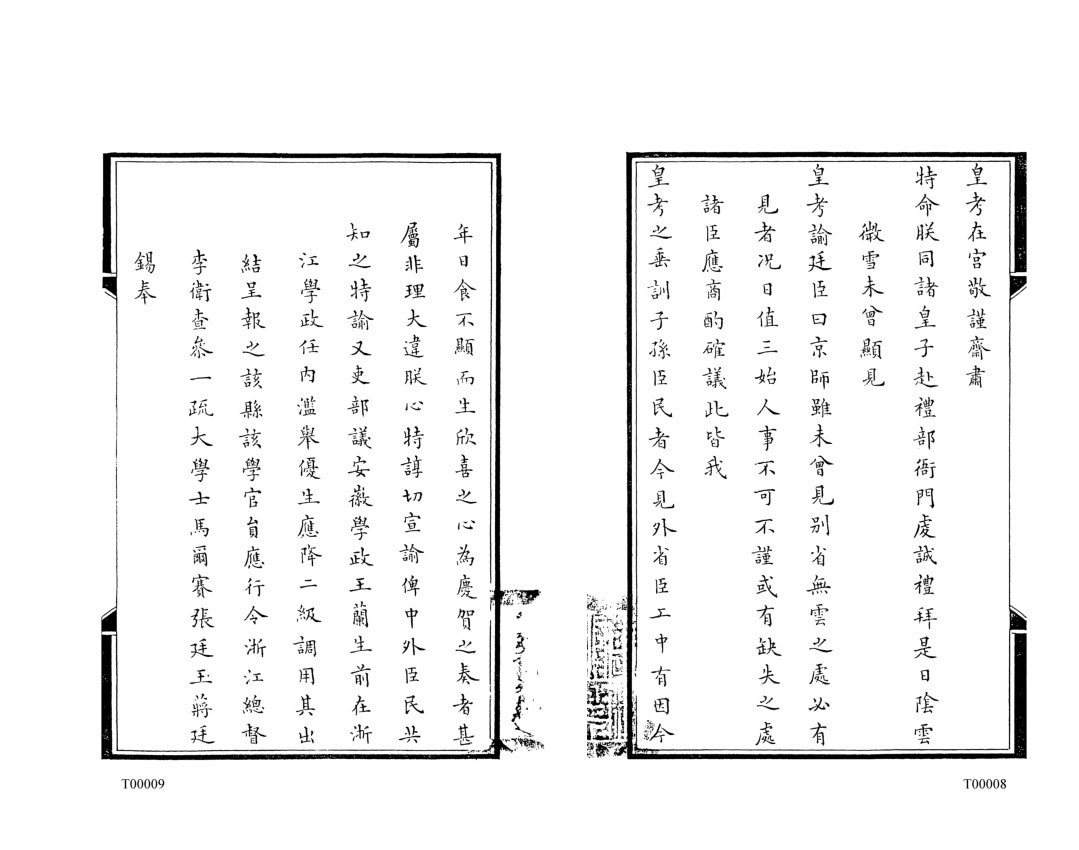 皇考在宮敬謹齋肅
特命朕同諸皇子赴禮部衙門虔誠禮拜是日陰雲
微雪未曾顯見
皇考諭廷臣曰京師雖未曾見别省無雲之處必有
見者况日值三始人事不可不謹或有缺失之處
諸臣應商酌確議此皆我
皇考之垂訓子孫臣民者今見外省臣工中有因今
年日食不顯而生欣喜之心為慶賀之奏者甚
屬非理大違朕心特諄切宣諭俾中外臣民共
知之特諭又吏部議安徽學政王蘭生前在浙
江學政任内濫舉優生應降二級調用其出
結呈報之該縣該學官員應行令浙江總督
李衛查叅一疏大學士馬爾賽張廷玉蔣廷
錫奉
T00009
T00008